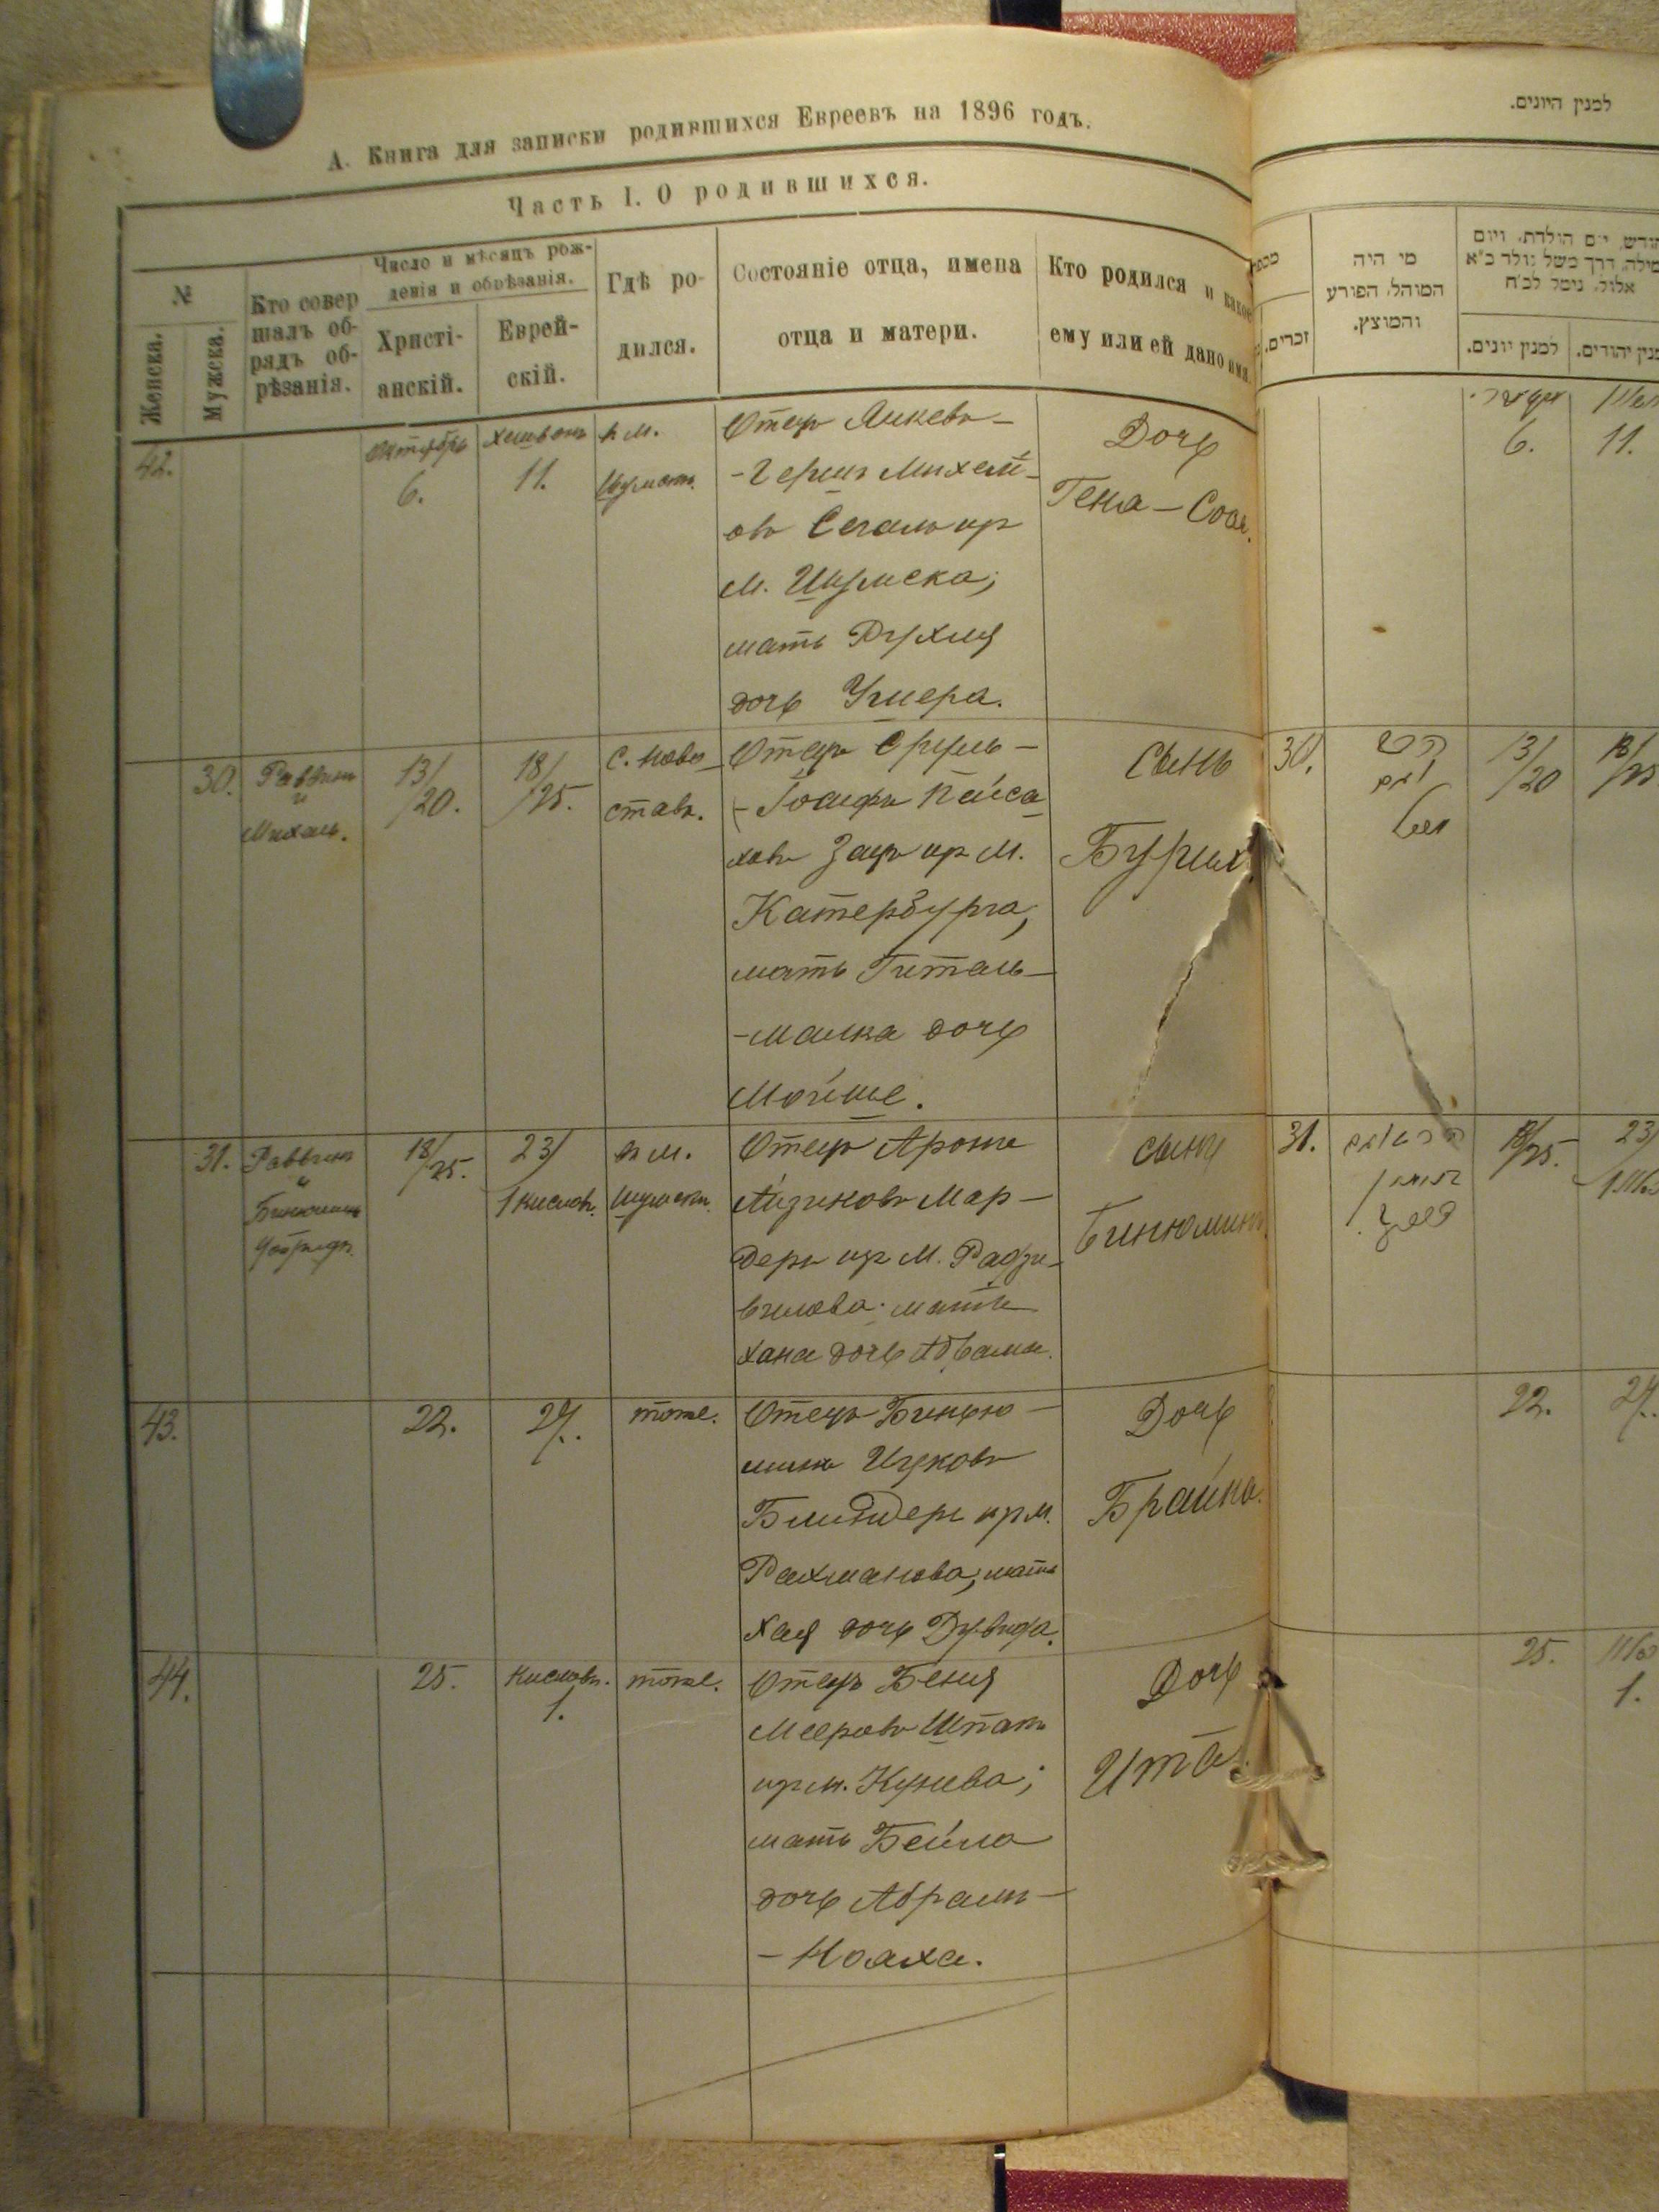 А. Книга для записки родившихся Евреевъ на 1896 годъ.
Часть I. О родившихся.
№
Женска.
Мужеска.
Кто совер
шалъ об-
рядъ об-
рѣзанія.
Число и мѣсяцъ рож-
денія и обрѣзанія.
Христі-
анскій.
Еврей-
скій.
Гдѣ ро-
дился.
Состояніе отца, имена
отца и матери.
Кто родился и какое
ему или ей дано имя.
42.
Октябрь
6.
Хешвонъ
11.
в м.
Шумскъ.
Отецъ Янкевъ-
-Гершъ Михел-
овъ Сегалъ из
м. Шумска;
мать Рухля
дочь Ушера.
Дочь
Гена-Сося.
30.
Раввинъ
и
Михаль.
13/
/20.
18/
/25.
с. Ново-
ставъ.
Отецъ Сруль-
-Іосифъ Пейса
ховъ Зацъ из м.
Катербурга,
мать Гиталь-
-Малка дочь
Мойше.
Сынъ
Бурих.
31.
Раввинъ
и
Бинюминъ
18/
/25.
23/
1 Кислевъ.
в м.
Шумскъ.
Отецъ Аронъ
Айзиковъ Мар-
деръ из м. Радзи-
вилова; мать
Хана дочь
Сынъ
Бинюминъ.
43.
22.
27.
тоже.
Отецъ Бинью-
минъ Ицковъ
из м.
Рахманова; мать
Хая дочь Дувида.
Дочь
Брайна.
44.
25.
Кислевъ.
1.
тоже.
Отецъ Беня
Мееровъ Шпакъ
из м. Кунева;
мать Бейла
дочь Абрамъ-
-Ноаха.
Дочь
Ита.
למנין היונים.
זכרים.
מי היה
המוהל, הפורע
והמוצץ.
למנין יונים.
6.
11.
30.
13/
/20
18/
/25
31.
18/
/25.
23/
22.
27.
25.
1.